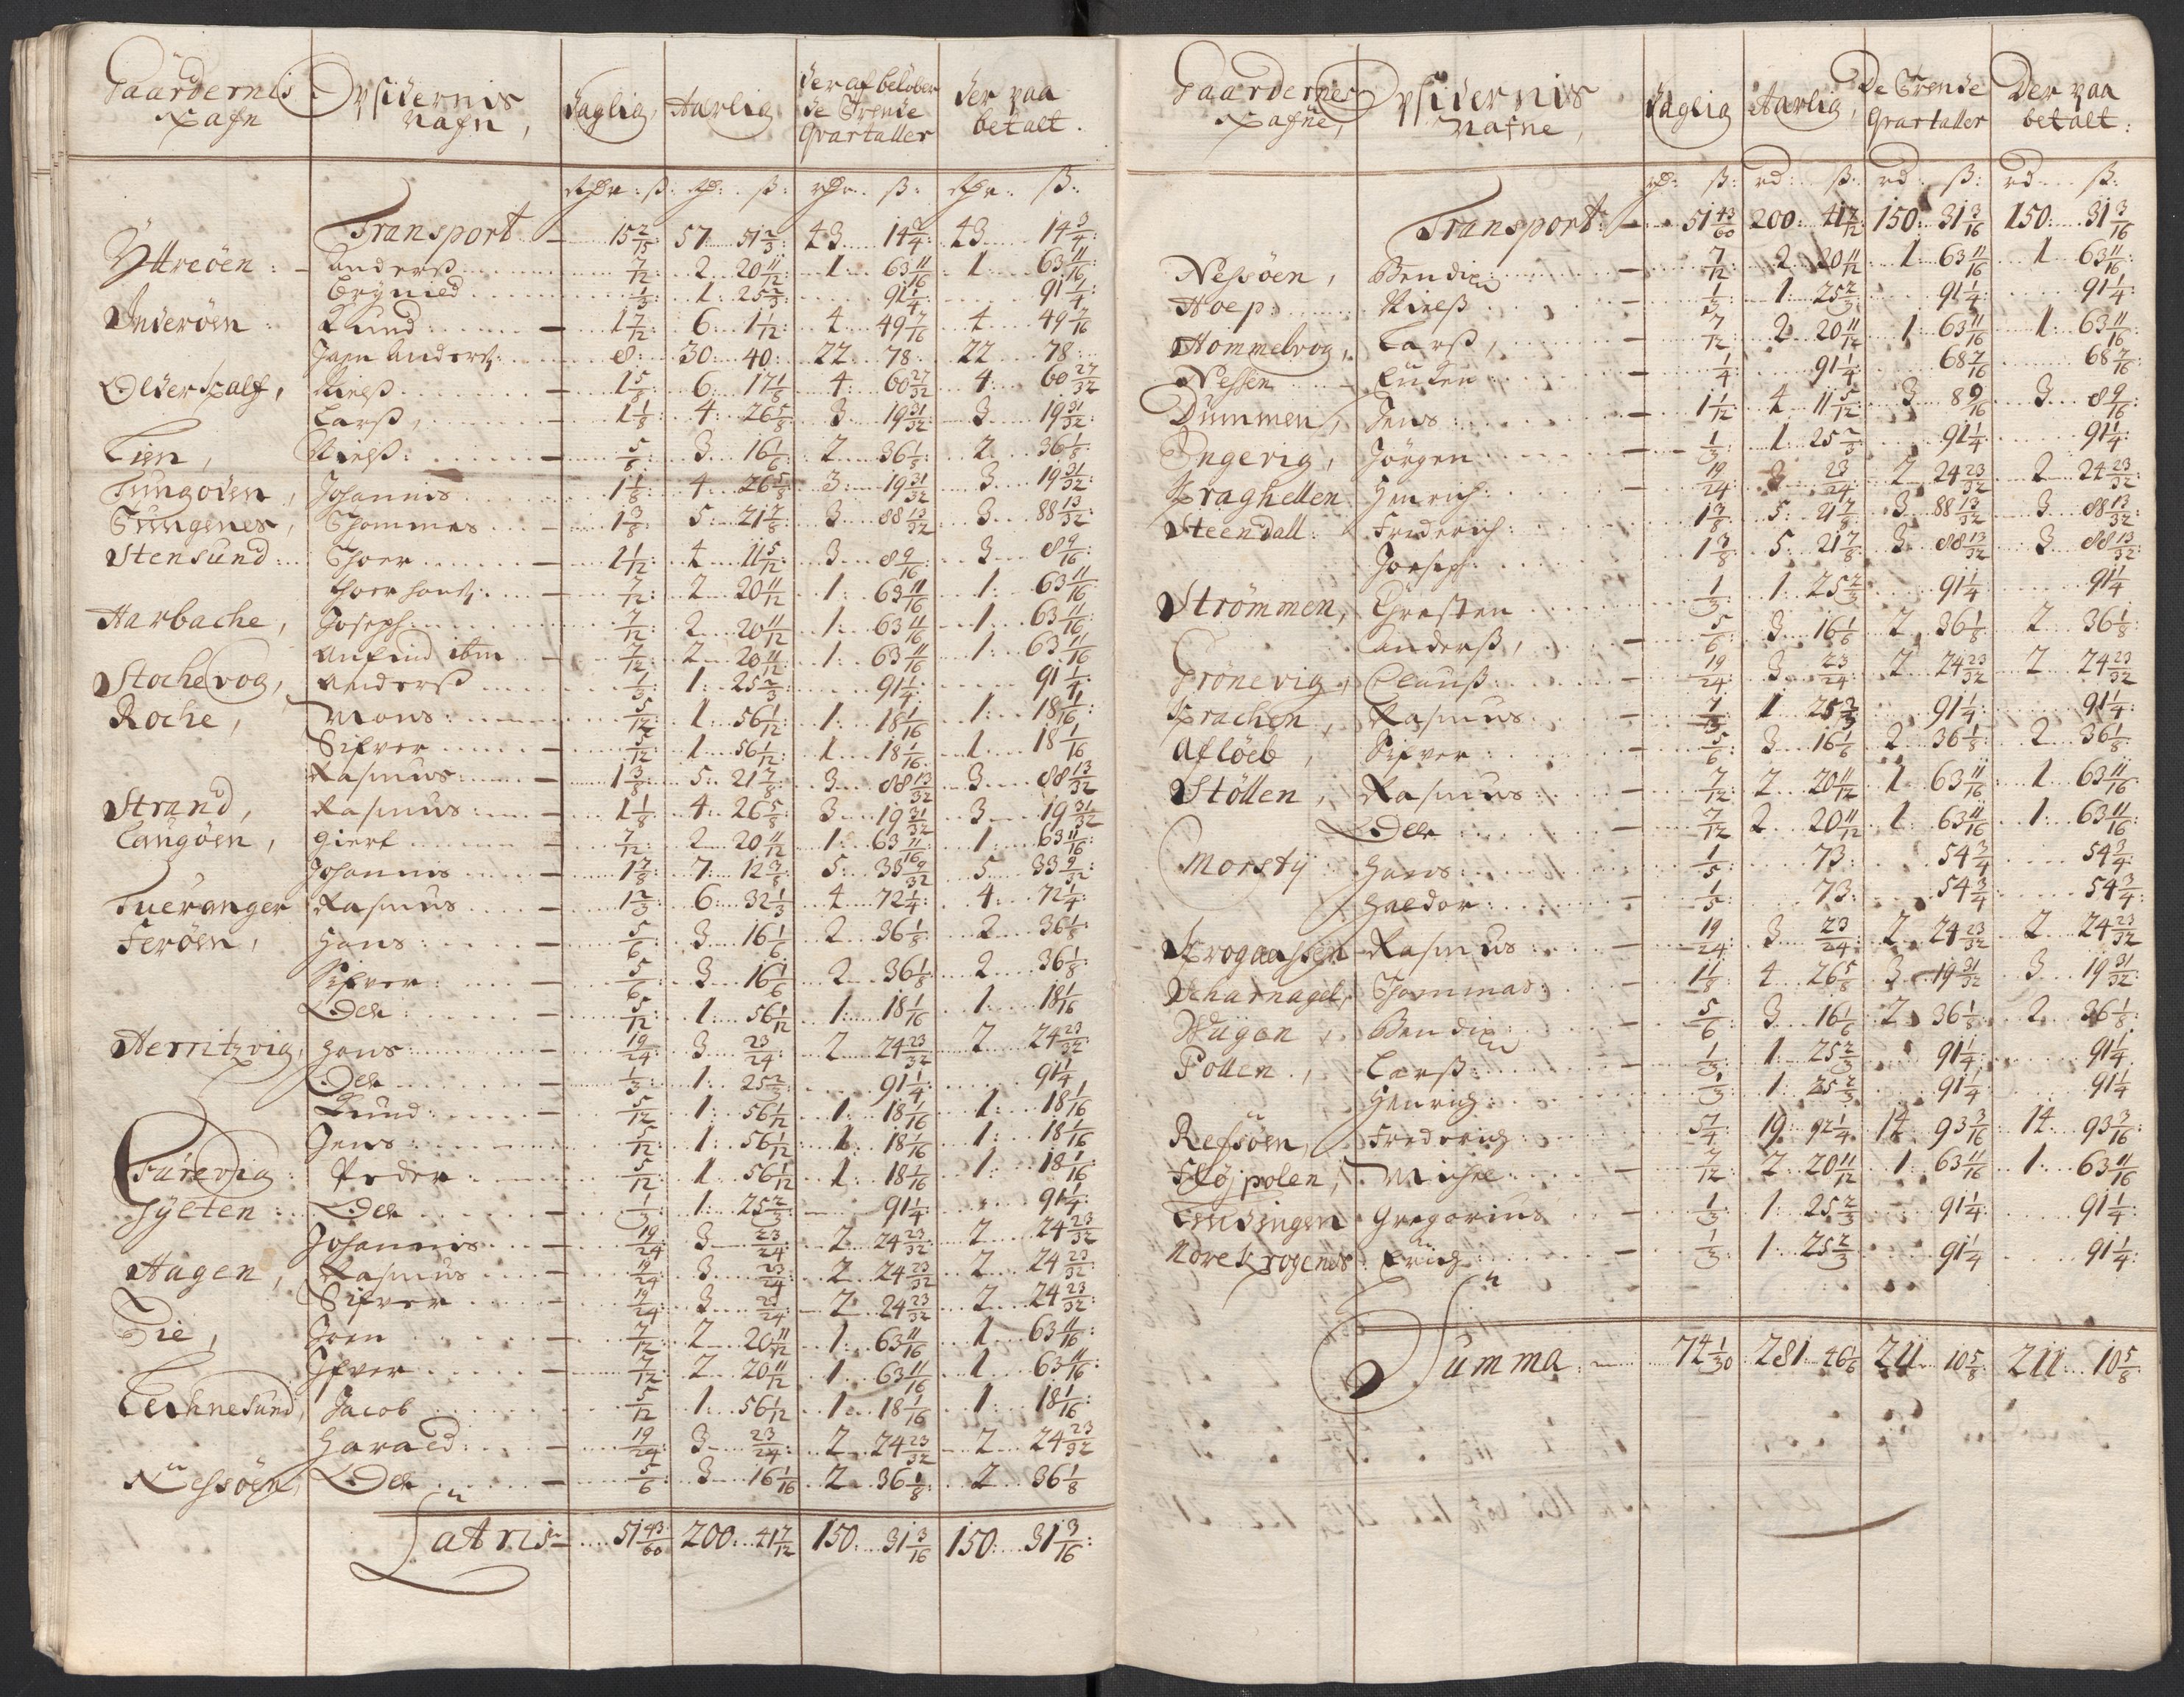 Gaardernis Nafn | Opsidernis Nafn, | daglig, | Aarlig | der af beløber de Trende Qvartaller | der paa betalt.
rdr: ß: | rd: ß: | rdr: ß: | rdr: ß:
Transport — 15 2/15 | 57 51 2/3 | 43 14 3/4 | 43 14 3/4
Yttreöen: Anderß 7/12 | 2 20 11/12 | 1: 63 11/16 | 1: 63 11/16
Brynild 1/3 | 1: 25 2/3 | 91 1/4 | 91 1/4
Inderöen: Knud: 1 7/12 | 6: 1 1/12 | 4 49 7/16 | 4 49 7/16
Jan Anderß: 8: | 30: 40: | 22: 78: | 22 78:
Older Kalf, Nielß 1 5/8 | 6: 17 1/8 | 4: 60 27/32 | 4: 60 27/32
Larß, 1 1/8 | 4: 26 5/8 | 3 19 31/32 | 3 19 31/32
Lien, Nielß: 5/8 | 3 16 1/6 | 2 36 1/8 | 2 36 1/8
Tungöden, Johannis 1 1/8 | 4: 26 5/8 | 3: 19 31/32 | 3 19 31/32
Tungenes, Thommas 1 3/8 | 5: 21 7/8 | 3 88 13/32 | 3 88 13/32
Stensund: Thoer 1 1/12 | 4 11 5/12 | 3 8 9/16 | 3 8 9/16
Thoer hanß: 7/12 | 2 20 11/12 | 1: 63 11/16 | 1: 63 11/16
Harbache, Joseph: 7/12 | 2 20 11/12 | 1: 63 11/16 | 1: 63 11/16
Anfind ibm 7/12 | 2 20 11/12 | 1: 63 11/16 | 1: 63 11/16
Stochevog, Anderß 1/3 | 1: 25 2/3 | 91 1/4 | 91 1/4
Roche, Mons: 5/12 | 1: 56 1/12 | 1: 18 1/16 | 1: 18 1/16
Sifver 5/12 | 1 56 1/12 | 1 18 1/16 | 1 18 1/16
Rasmus 1 3/8 | 5: 21 7/8 | 3 88 13/32 | 3 88 13/32
Strand, Rasmus: 1 1/8 | 4: 26 5/8 | 3 19 31/32 | 3 19 31/32
Langöen, Giert 7/12 | 2 20 11/12 | 1: 63 11/16 | 1: 63 11/16
Johannis 1 7/8 | 7: 12 3/8 | 5: 33 9/32 | 5 33 9/32
Tueranger Rasmus 1 2/3 | 6: 32 1/3 | 4 72 1/4 | 4: 72 1/4
Feröen, Hans: 5/6 | 3 16 1/6 | 2 36 1/8 | 2 36 1/8
Sifver: 5/6 | 3 16 1/6 | 2 36 1/8 | 2 36 1/8
Ole: 5/12 | 1: 56 1/12 | 1: 18 1/16 | 1: 18 1/16
Herritzvig, Hans: 19/24 | 3 23/24 | 2 24 23/32 | 2 24 23/32
Ole 1/3 | 1: 25 2/3 | 91 1/4 | 91 1/4
Knud: 5/12 | 1: 56 1/12 | 1: 18 1/16 | 1: 18 1/16
Jens: 5/12 | 1: 56 1/12 | 1: 18 1/16 | 1: 18 1/16
Furevig: Peder 5/12 | 1 56 1/12 | 1 18 1/16 | 1: 18 1/16
Hylten: Ole 1/3 | 1: 25 2/3 | 91 1/4 | 91 1/4
Johannis 19/24 | 3 23/24 | 2 24 23/32 | 2 24 23/32
Hagen, Rasmus 19/24 | 3 23/24 | 2 24 23/32 | 2 24 23/32
Sifver 19/24 | 3 23/24 | 2 24 23/32 | 2 24 23/32
Die, Joen 7/12 | 2 20 11/12 | 1: 63 11/16 | 1 63 11/16
Ifver 7/12 | 2 20 11/12 | 1 63 11/16 | 1 63 11/16
Lechnesund, Jacob 5/12 | 1: 56 1/12 | 1 18 1/16 | 1: 18 1/16
Harald: 19/24 | 3 23/24 | 2 24 23/32 | 2 24 23/32
Nessöen, Ole 5/6 | 3 16 1/16 | 2 36 1/8 | 2 36 1/8
Latris 51 43/60 | 200: 41 7/12 | 150: 31 3/16 | 150: 31 3/16
Gaardernes Nafne, | Opsidernis Nafne, | Daglig | Aarlig, | De Trende Qvartaller | Der paa betalt:
rd: ß: | rd: ß: | rd: ß: | rd: ß:
Transport: 51 43/60 | 200: 41 7/12 | 150: 31 3/16 | 150: 31 3/16
Nessöen, Bendix: 7/12 | 2 20 11/12 | 1 63 11/16 | 1 63 11/16
Hoep: Nielß 1/3 | 1: 25 2/3 | 91 1/4 | 91 1/4
Hommelvog, Larß, 7/12 | 2 20 11/12 | 1: 63 11/16 | 1: 63 11/16
Nessen 1/4 | 91 1/4 | 68 7/16 | 68 7/16
Dummen, Jens: 1 1/12 | 4 11 5/12 | 3 8 9/16 | 3 8 9/16
Ingevig, Jörgen 1/3 | 1: 25 2/3 | 91 1/4 | 91 1/4
Kraghellen Hinrich: 19/24 | 3 23/24 | 2 24 23/32 | 2 24 23/32
Steendall: Frederich: 1 3/8 | 5: 21 7/8 | 3 88 13/32 | 3 88 13/32
Joesep: 1 3/8 | 5: 21 7/8 | 3 88 13/32 | 3 88 13/32
Strömmen, Christen 1/3 | 1: 25 2/3 | 91 1/4 | 91 1/4
Anderß, 5/6 | 3 16 1/6 | 2 36 1/8 | 2 36 1/8
Grönevig, Clauß: 19/24 | 3 23/24 | 2 24 23/32 | 2 24 23/32
Krachen, Rasmus: 1/3 | 1 25 2/3 | 91 1/4 | 91 1/4
Aflöeb, Sifver 5/6 | 3 16 1/6 | 2 36 1/8 | 2 36 1/8
Stöllen, Rasmus: 7/12 | 2 20 11/12 | 1 63 11/16 | 1 63 11/16
Ole 7/12 | 2 20 11/12 | 1 63 11/16 | 1: 63 11/16
Morsty Hans: 1/5 | 73: | 54 3/4 | 54 3/4
Haldor: 1/5 | 73: | 54 3/4 | 54 3/4
Krogaassen Rasmus 19/24 | 3 23/24 | 2 24 23/32 | 2 24 23/32
Scharnagel, Thommas: 1 1/8 | 4 26 5/8 | 3 19 31/32 | 3 19 31/32
Wügen, Bendix: 5/6 | 3 16 1/6 | 2 36 1/8 | 2 36 1/8
Pollen, Larß: 1/3 | 1: 25 2/3 | 91 1/4 | 91 1/4
Henrich: 1/3 | 1: 25 2/3 | 91 1/4 | 91 1/4
Refsöen, Frederich 5 1/4 | 19 92 1/4 | 14 93 3/16 | 14: 93 3/16
Flöjpolen, Michel 7/12 | 2 20 11/12 | 1: 63 11/16 | 1: 63 11/16
Endingen Gregorius 1/3 | 1: 25 2/3 | 91 1/4 | 91 1/4
Nore Krogenes Erich 1/3 | 1: 25 2/3 | 91 1/4 | 91 1/4
Summa: 74 1/30 | 281 46 1/6 | 211 10 5/8 | 211: 10 5/8